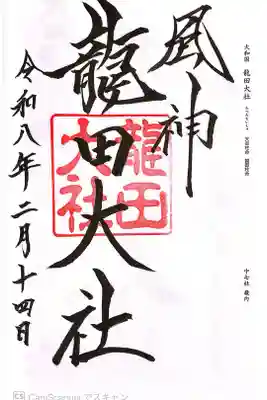 大和国 龍田大社
中七社 畿内
風神
龍田大社
龍田
大社
令和八年二月十四日
CS CamScannerでスキャン